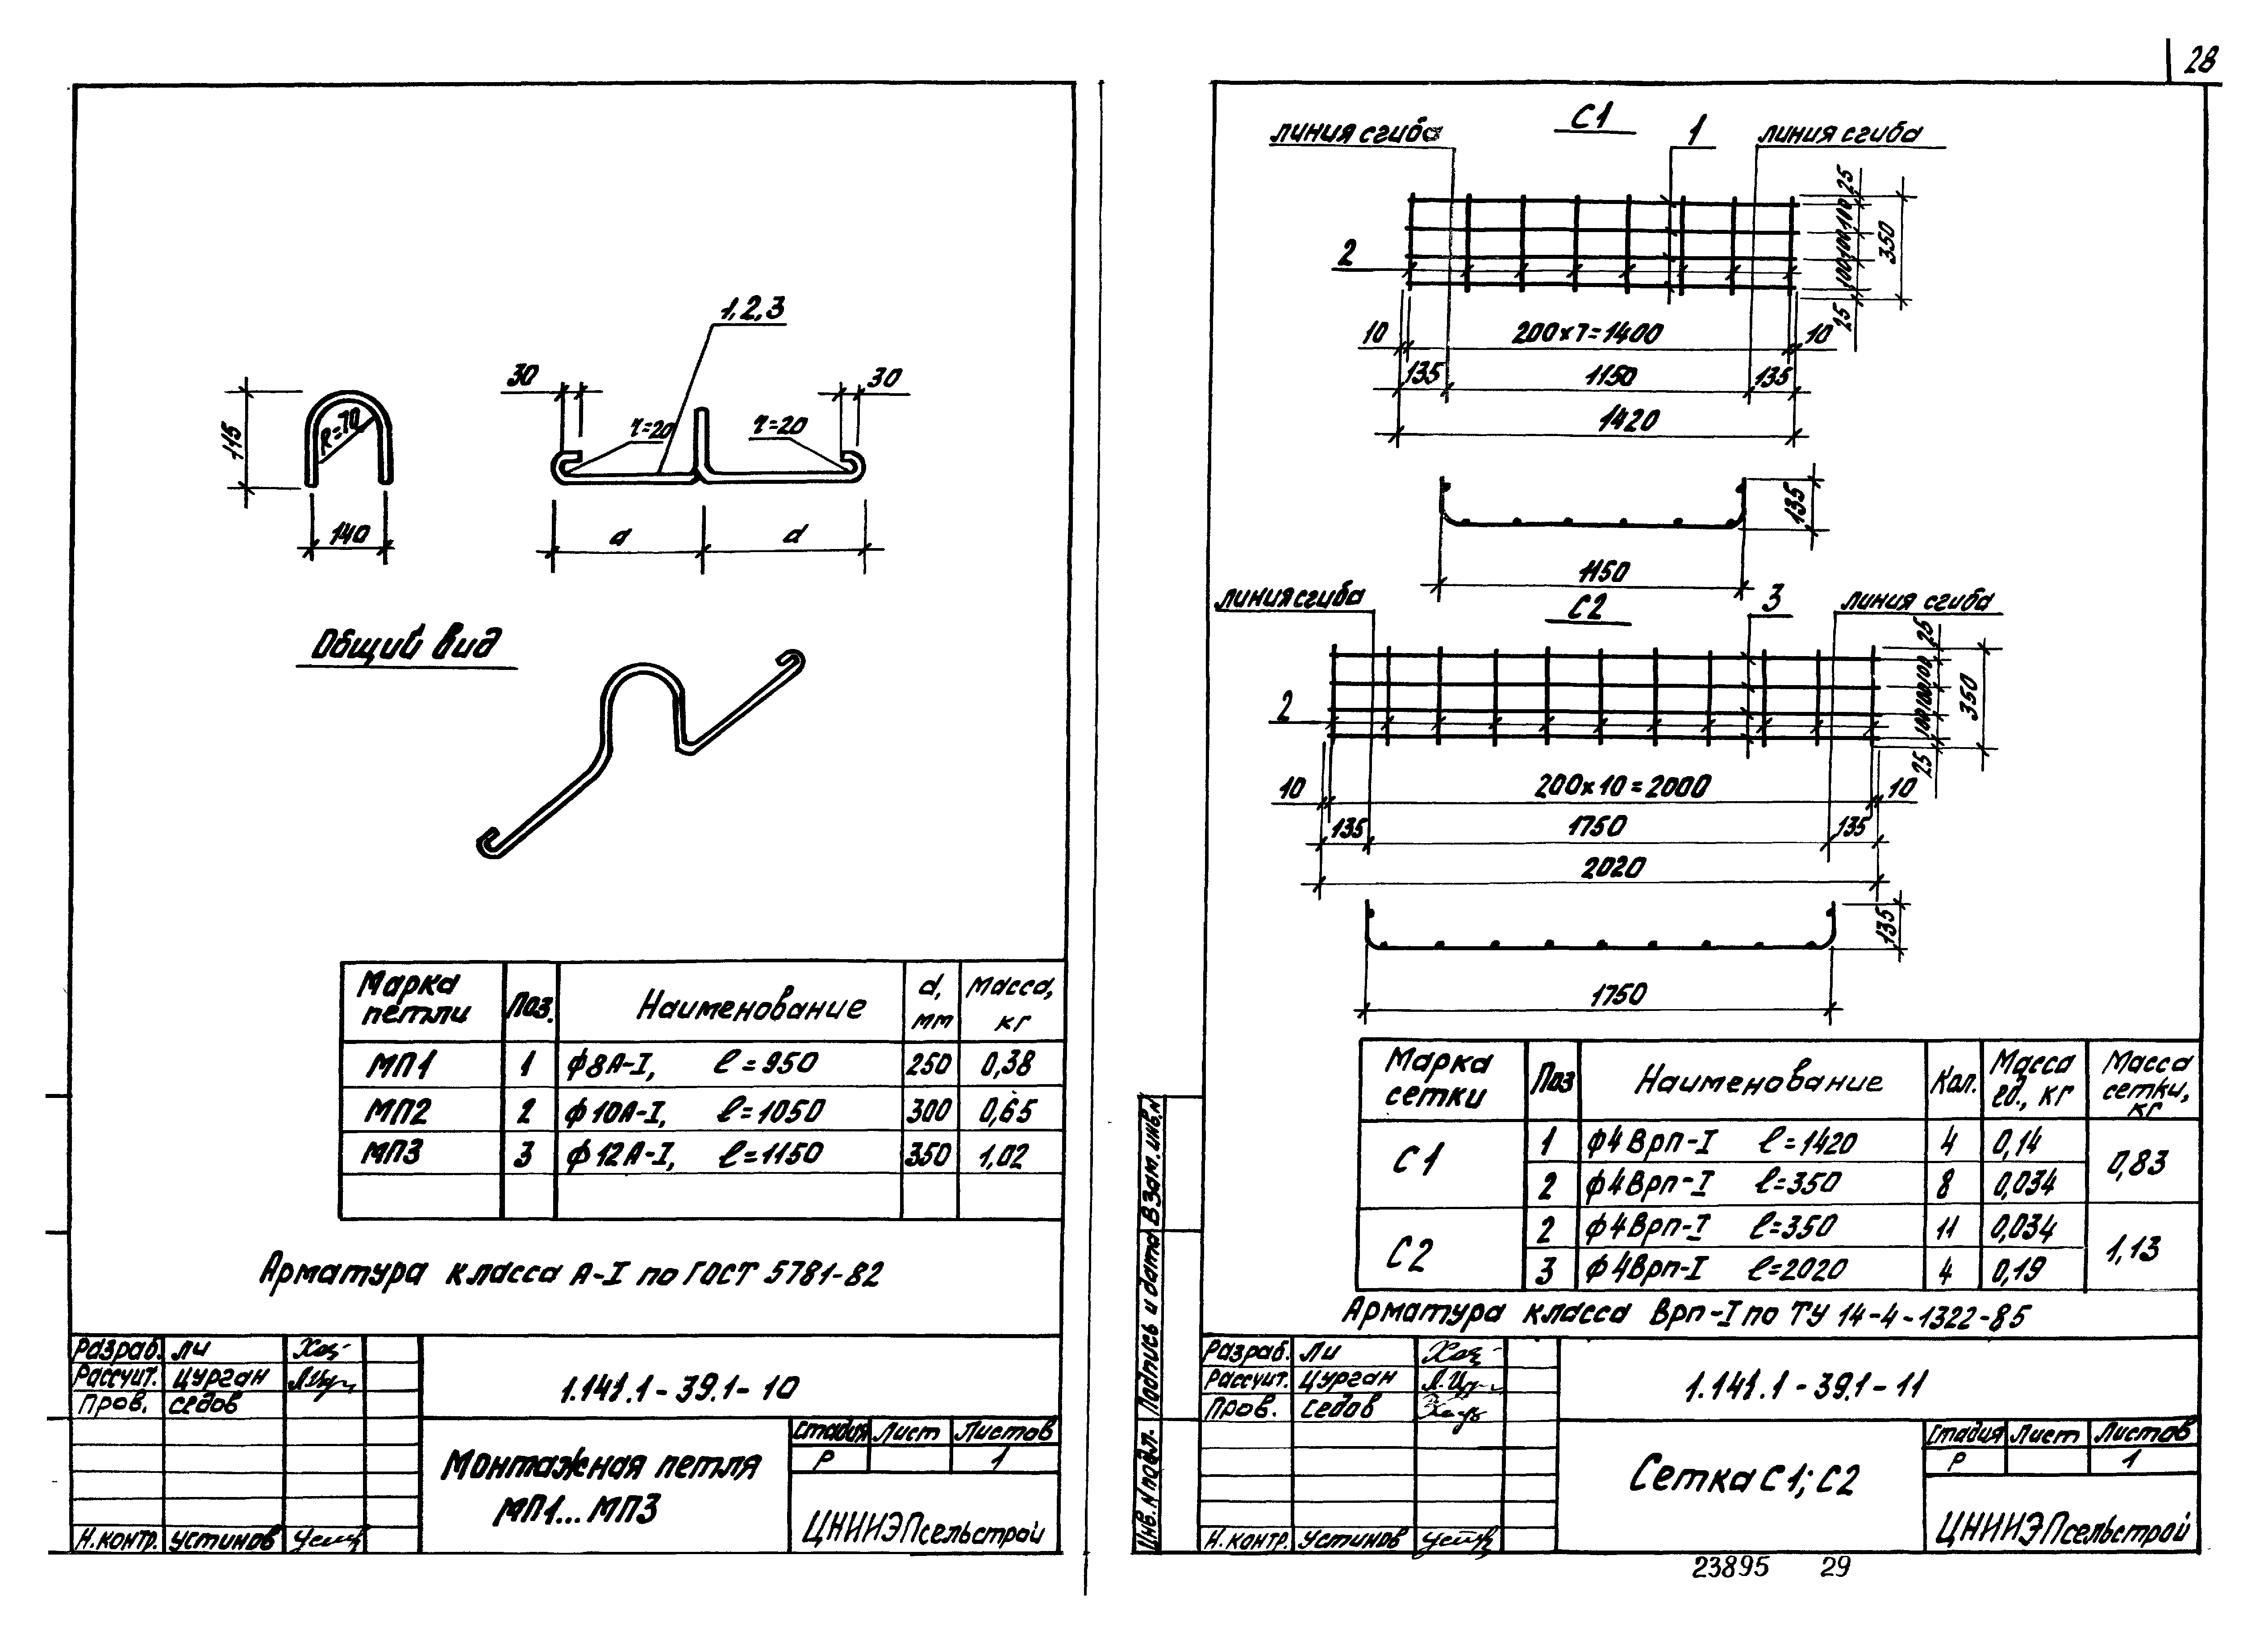 28
1,2,3
30
30
r=20
r=20
R=70
145
140
d
d
Общий вид
Марка петли Поз. Наименование d, мм Масса, кг
МП1 1 ф8А-I, ℓ=950 250 0,38
МП2 2 ф10А-I, ℓ=1050 300 0,65
МП3 3 ф12А-I, ℓ=1150 350 1,02
Арматура класса А-I по ГОСТ 5781-82
Разраб. Ли
Рассчит. Цурган
Пров. Седов
Н.контр. Устинов
1.141.1-39.1-10
Монтажная петля
МП1...МП3
Стадия Лист Листов
Р 1
ЦНИИЭПсельстрой
С1
линия сгиба 1 линия сгиба
2
25
100
100
100
25
350
10 200×7=1400 10
135 1150 135
1420
135
1150
линия сгиба С2 3 линия сгиба
2
25
100
100
100
25
350
10 200×10=2000 10
135 1750 135
2020
135
1750
Марка сетки Поз Наименование Кол. Масса ед., кг Масса сетки, кг
С1 1 ф4Врп-I ℓ=1420 4 0,14 0,83
2 ф4Врп-I ℓ=350 8 0,034
С2 2 ф4Врп-I ℓ=350 11 0,034 1,13
3 ф4Врп-I ℓ=2020 4 0,19
Арматура класса Врп-I по ТУ 14-4-1322-85
Взам. инв. №
Подпись и дата
Инв. № подл.
Разраб. Ли
Рассчит. Цурган
Пров. Седов
Н.контр. Устинов
1.141.1-39.1-11
Сетка С1; С2
Стадия Лист Листов
Р 1
ЦНИИЭПсельстрой
23895 29